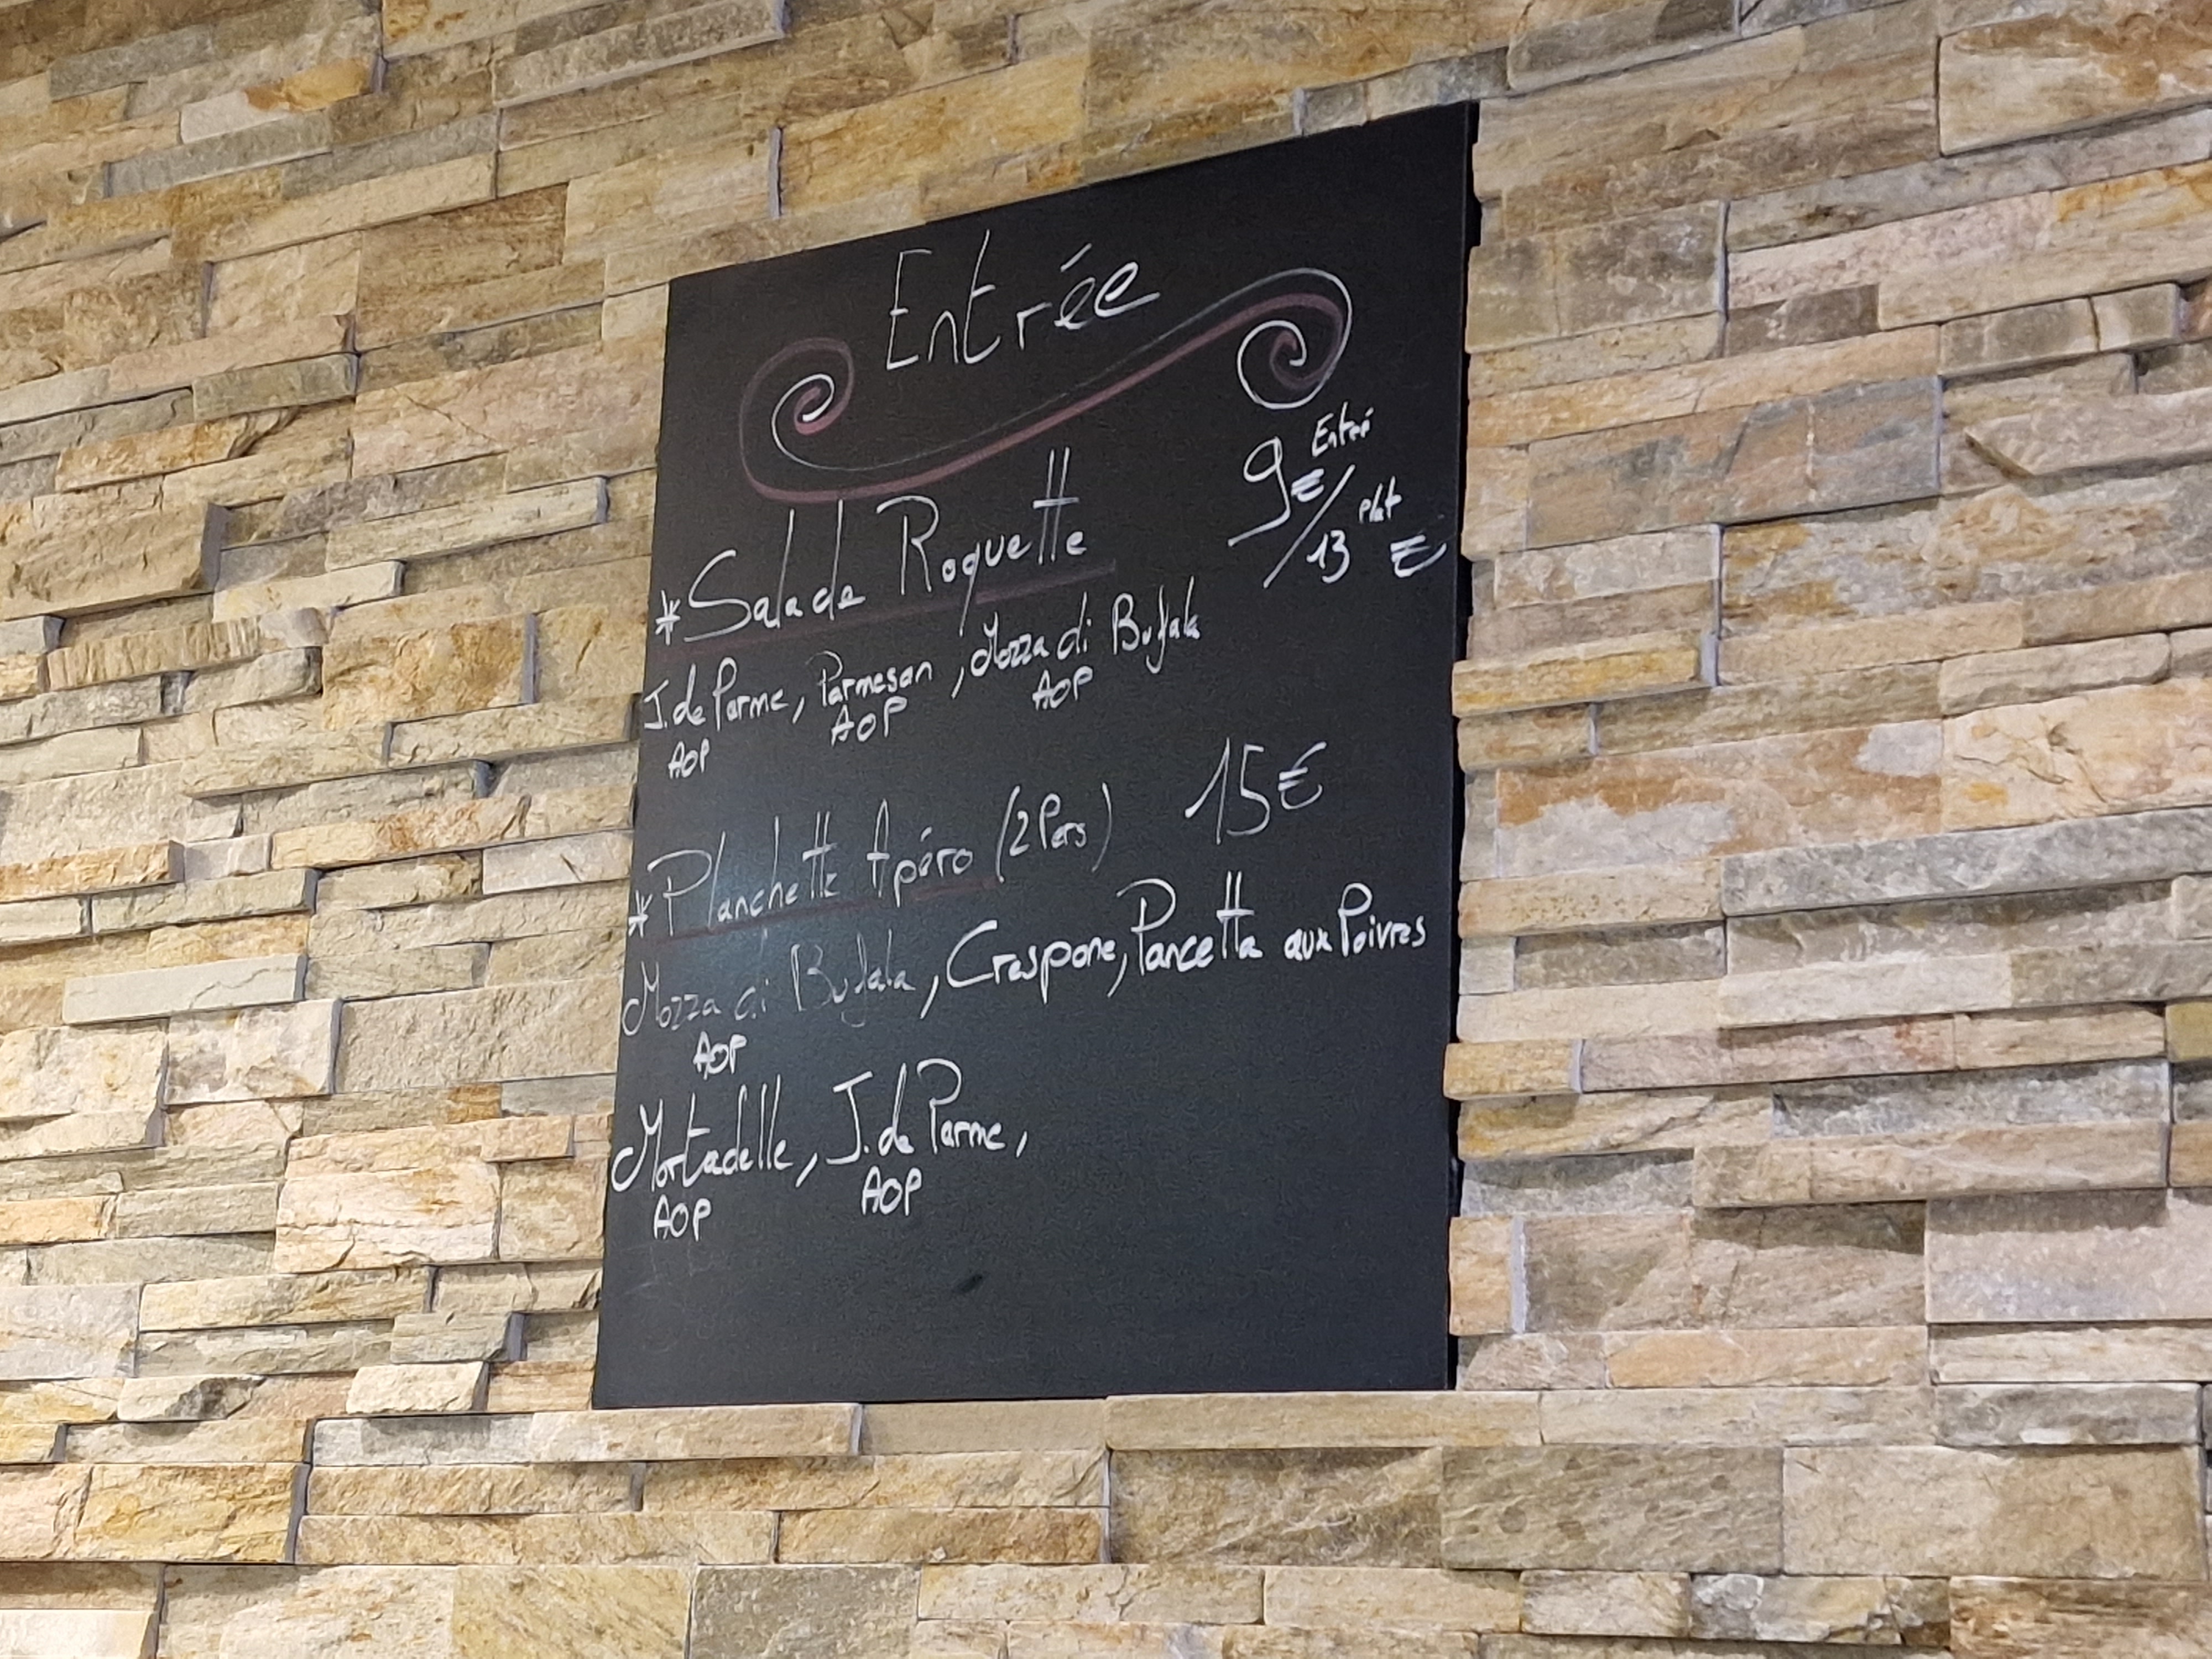 Entrée
*Salade Roquette 9€ Entré / 13 Plat €
J. de Parme, Parmesan, Mozza di Bufala
AOP AOP AOP
*Planchette Apéro (2 Pers) 15€
Mozza di Bufala, Crespone, Pancetta aux Poivres
AOP
Mortadelle, J. de Parme,
AOP AOP